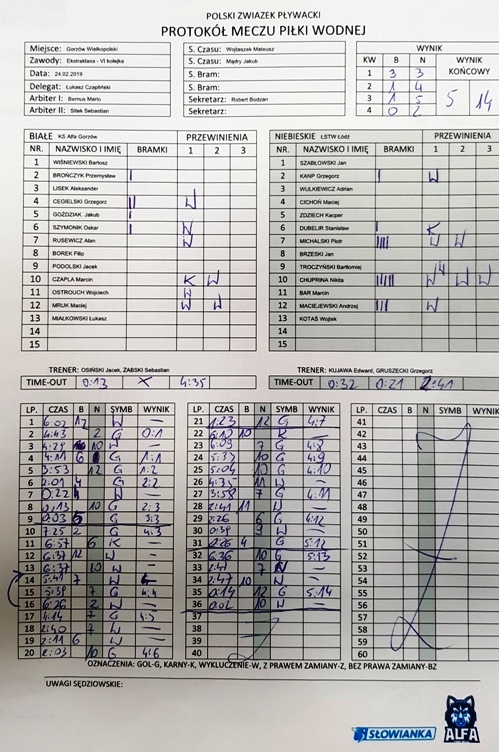 POLSKI ZWIAZEK PŁYWACKI
PROTOKÓŁ MECZU PIŁKI WODNEJ
Miejsce: Gorzów Wielkopolski
Zawody: Ekstraklasa - VI kolejka
Data: 24.02.2019
Delegat: Łukasz Czapliński
Arbiter I: Bernus Mario
Arbiter II: Sitek Sebastian
S. Czasu: Wojtaszek Mateusz
S. Czasu: Mądry Jakub
S. Bram:
S. Bram:
Sekretarz: Robert Bodzan
Sekretarz:
WYNIK
KW B N WYNIK KOŃCOWY
1 3 3
2 1 4
3 1 5
4 0 2
5 14
BIAŁE KS Alfa Gorzów PRZEWINIENIA
NR. NAZWISKO I IMIĘ BRAMKI 1 2 3
1 WIŚNIEWSKI Bartosz
2 BROŃCZYK Przemysław I
3 LISEK Aleksander
4 CEGIELSKI Grzegorz II W
5 GOŹDZIAK Jakub I
6 SZYMONIK Oskar I W
7 RUSEWICZ Alan W
8 BOREK Filip
9 PODOLSKI Jacek
10 CZAPLA Marcin K W
11 OSTROUCH Wojciech W
12 MRUK Maciej W W
13 MIAŁKOWSKI Łukasz
14
15
NIEBIESKIE ŁSTW Łódź PRZEWINIENIA
NR. NAZWISKO I IMIĘ BRAMKI 1 2 3
1 SZABŁOWSKI Jan
2 KANP Grzegorz I W
3 WULKIEWICZ Adrian
4 CICHOŃ Maciej
5 ZDZIECH Kacper
6 DUBELIR Stanisław I K
7 MICHALSKI Piotr IIII W W
8 BRZESKI Jan
9 TROCZYŃSKI Bartłomiej W
10 CHUPRINA Nikita IIIII W W W
11 BAR Marcin
12 MACIEJEWSKI Andrzej III W
13 KOTAŚ Wojtek
14
15
TRENER: OSIŃSKI Jacek, ŻABSKI Sebastian
TIME-OUT 0:13 X 4:35
TRENER: KUJAWA Edward, GRUSZECKI Grzegorz
TIME-OUT 0:32 0:21 2:41
LP. CZAS B N SYMB WYNIK
1 6:02 12 W —
2 4:43 2 G 0:1
3 4:29 10 W —
4 4:11 6 G 1:1
5 3:53 12 G 1:2
6 2:01 4 G 2:2
7 0:22 4 W —
8 0:13 10 G 2:3
9 0:03 G 3:3
10 7:25 2 G 4:3
11 6:57 6 K
12 6:37 12 W —
13 6:37 10 W —
14 5:41 7 W
15 5:39 7 G 4:4
16 6:26 2 W —
17 4:14 7 G 4:5
18 2:40 7 W
19 2:11 6 W
20 2:03 10 G 4:6
LP. CZAS B N SYMB WYNIK
21 1:23 12 G 4:7
22 6:10 10 K —
23 7 G 4:8
24 5:37 10 G 4:9
25 5:04 10 G 4:10
26 4:35 11 W —
27 3:58 7 G 4:11
28 2:41 11 W —
29 2:26 6 G 4:12
30 0:39 9 W —
31 0:26 4 G 5:12
32 6:36 10 G 5:13
33 2:47 7 W —
34 2:47 10 W —
35 0:14 12 G 5:14
36 0:02 10 W —
37
38
39
40
LP. CZAS B N SYMB WYNIK
41
42
43
44
45
46
47
48
49
50
51
52
53
54
55
56
57
58
59
60
OZNACZENIA: GOL-G, KARNY-K, WYKLUCZENIE-W, Z PRAWEM ZAMIANY-Z, BEZ PRAWA ZAMIANY-BZ
UWAGI SĘDZIOWSKIE:
SŁOWIANKA
ALFA